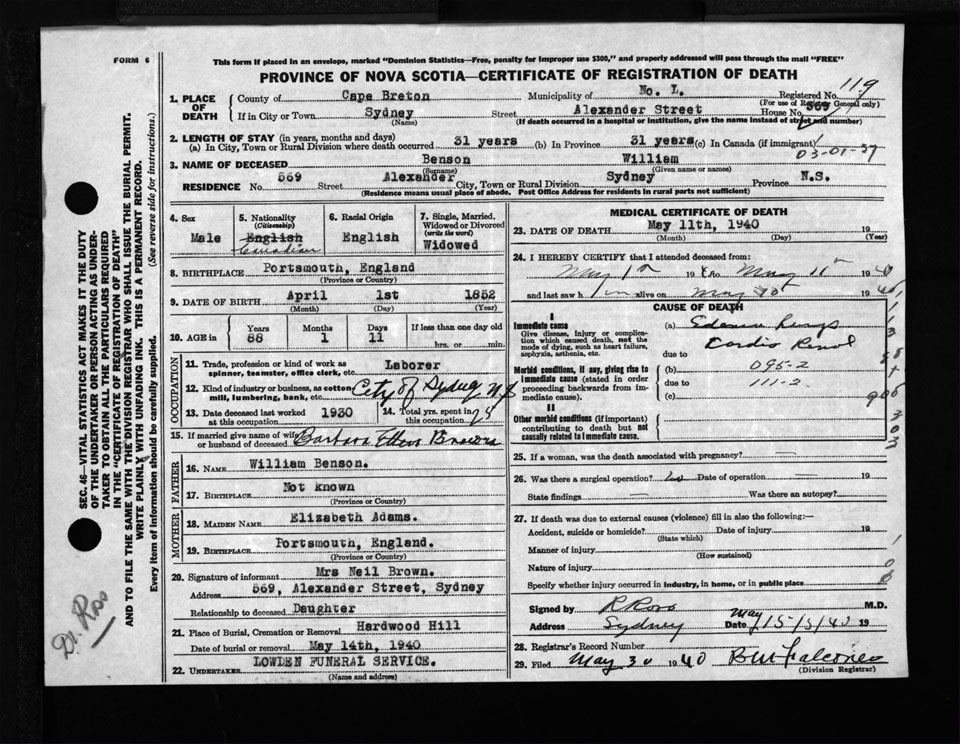 FORM 6
This form if placed in an envelope, marked "Dominion Statistics—Free, penalty for improper use $300," and properly addressed will pass through the mail "FREE"
PROVINCE OF NOVA SCOTIA—CERTIFICATE OF REGISTRATION OF DEATH
119
1. PLACE OF DEATH { County of Cape Breton Municipality of No. L. Registered No.
(For use of Registrar General only)
If in City or Town Sydney Street Alexander Street House No. 569
(Name) (If death occurred in a hospital or institution, give the name instead of street and number)
2. LENGTH OF STAY (in years, months and days)
(a) In City, Town or Rural Division where death occurred 31 years (b) In Province 31 years (c) In Canada (if immigrant)
03-01-37
3. NAME OF DECEASED Benson William
(Surname) (Given name or names)
RESIDENCE No. 569 Street Alexander City, Town or Rural Division Sydney Province N.S.
(Residence means usual place of abode. Post Office Address for residents in rural parts not sufficient)
4. Sex Male
5. Nationality (Citizenship) English Canadian
6. Racial Origin English
7. Single, Married, Widowed or Divorced (write the word) Widowed
8. BIRTHPLACE Portsmouth, England
(Province or Country)
9. DATE OF BIRTH April 1st 1852
(Month) (Day) (Year)
10. AGE in { Years Months Days If less than one day old
88 1 11 hrs. or min.
OCCUPATION
11. Trade, profession or kind of work as spinner, teamster, office clerk, etc. Laborer
12. Kind of industry or business, as cotton mill, lumbering, bank, etc. City of Sydney N.S
13. Date deceased last worked at this occupation 1930
14. Total yrs. spent in this occupation
15. If married give name of wife or husband of deceased Barbara Ellen
FATHER
16. NAME William Benson.
17. BIRTHPLACE Not known
(Province or Country)
MOTHER
18. MAIDEN NAME Elizabeth Adams.
19. BIRTHPLACE Portsmouth, England.
(Province or Country)
20. Signature of informant Mrs Neil Brown.
Address 569, Alexander Street, Sydney
Relationship to deceased Daughter
21. Place of Burial, Cremation or Removal Hardwood Hill
Date of burial or removal May 14th, 1940
22. UNDERTAKER LOWDEN FUNERAL SERVICE.
(Name and address)
MEDICAL CERTIFICATE OF DEATH
23. DATE OF DEATH May 11th, 1940 19
(Month) (Day) (Year)
24. I HEREBY CERTIFY that I attended deceased from:
May 1st 19 40 to May 11th 19 40
and last saw him alive on May 19 40
CAUSE OF DEATH
I
Immediate cause
Give disease, injury or complication which caused death, not the mode of dying, such as heart failure, asphyxia, asthenia, etc.
(a) Edema Lungs
due to Cardio Renal
Morbid conditions, if any, giving rise to immediate cause (stated in order proceeding backwards from immediate cause).
(b) 095-2
due to 111-2.
(c)
II
Other morbid conditions (if important) contributing to death but not causally related to immediate cause.
25. If a woman, was the death associated with pregnancy? —
26. Was there a surgical operation? No Date of operation 19
State findings — Was there an autopsy?
27. If death was due to external causes (violence) fill in also the following:—
Accident, suicide or homicide? Date of injury 19
(State which)
Manner of injury
(How sustained)
Nature of injury
Specify whether injury occurred in industry, in home, or in public place
Signed by R Ross M.D.
Address Sydney Date May 15/5/40 19
28. Registrar's Record Number
29. Filed May 30 1940
(Division Registrar)
SEC. 46—VITAL STATISTICS ACT MAKES IT THE DUTY
OF THE UNDERTAKER OR PERSON ACTING AS UNDERTAKER TO OBTAIN ALL THE PARTICULARS REQUIRED
IN THE "CERTIFICATE OF REGISTRATION OF DEATH"
AND TO FILE THE SAME WITH THE DIVISION REGISTRAR WHO SHALL ISSUE THE BURIAL PERMIT.
WRITE PLAINLY WITH UNFADING INK. THIS IS A PERMANENT RECORD.
Every item of information should be carefully supplied. (See reverse side for instructions.)
Dr. Ross